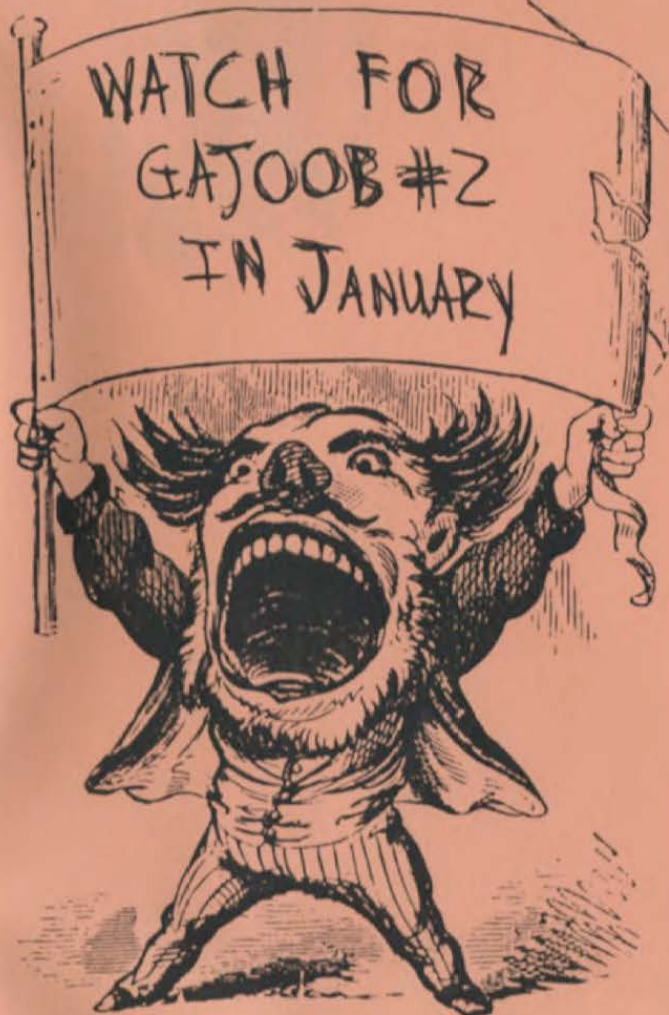 WATCH FOR
GAJOOB #2
IN JANUARY